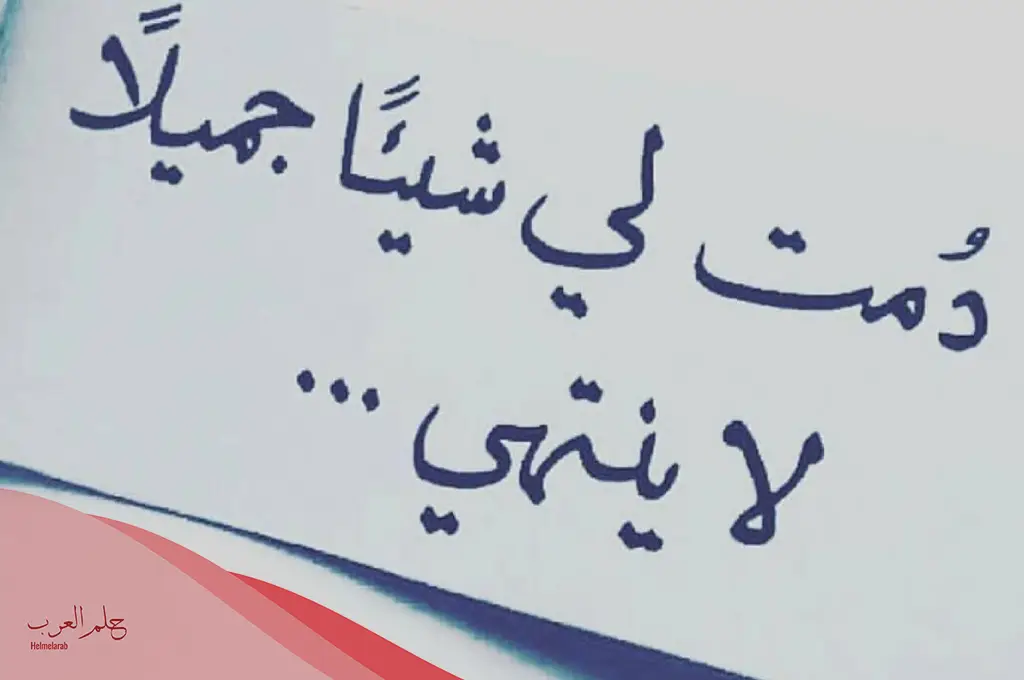 دُمت لي شيئًا جميلًا
لا ينتهي ...
حلم العرب
Helmelarab